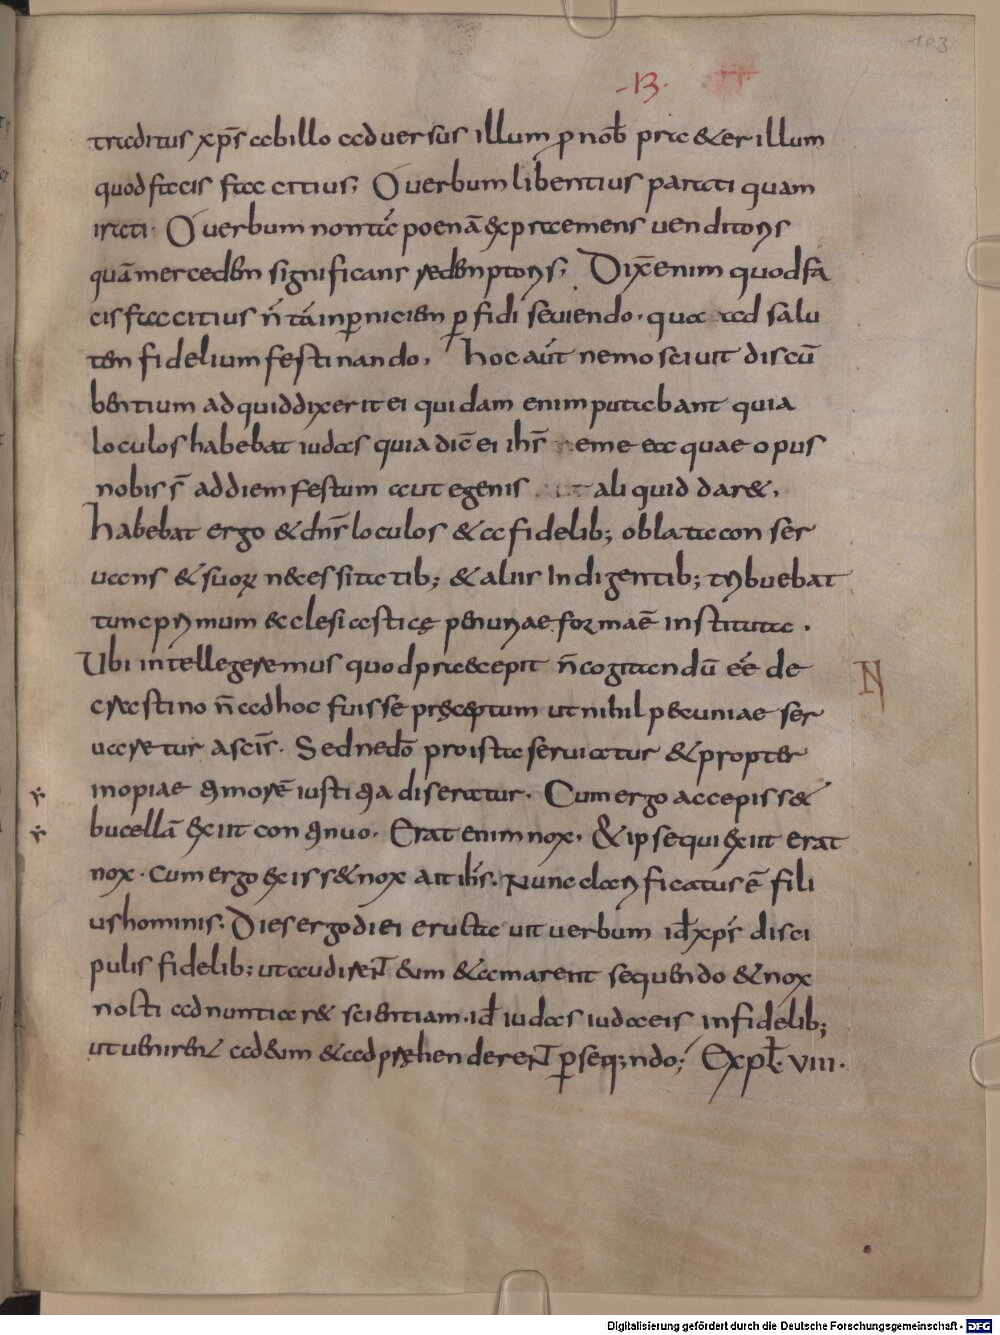 103
·B·
traditus xp̄s ab illo aduersus illum ꝓ nob̄ prae&er illum
quod facis fac citius; O uerbum libentius parati quam
irati· O uerbum non tā poenā expraemens uenditoris
quā mercedem significans redemptoris; Dix̄ enim quod fa
cis fac citius n̄ tā in ꝑniciem ꝑfidi seuiendo· qua ad salu
tem fidelium festinando, hoc aūt nemo sciuit discū
bentium ad quid dixerit ei quidam enim putabant quia
loculos habebat iudas quia dic̄ ei ih̄s eme ea quae opus
nobis s̄ ad diem festum aut egenis ut aliquid dar&,
habebat ergo & dn̄s loculos & a fidelib; oblata conser
uans & suoꝝ necessitatib; & aliis Indigentib; tribuebat
tunc primum ecclesiasticę pecuniae forma ē instituta.
Ubi intellegeremus quod praecepit n̄ cogitandū ēē de
crastino n̄ ad hoc fuisse pręceptum ut nihil pecuniae ser
uaretur a sc̄is· Sed ne dō pro ista seruiatur & propter
inopiae timorē iustitia diseratur· Cum ergo accepiss&
bucellā exiit continuo· Erat enim nox· & ipse qui exiit erat
nox· cum ergo exiss& nox ait ih̄s· Nunc clarificatus ē fili
us hominis· Dies ergo diei eructauit uerbum id̄ xp̄s disci
pulis fidelib; ut audirent eum & amarent sequendo & nox
nocti adnuntiar& scientiam· id̄ iudas iudaeis infidelib;
ut uenirent ad eum & adpręhenderent ꝑseq;ndo; Expl̄· VIII·
N
Digitalisierung gefördert durch die Deutsche Forschungsgemeinschaft - DFG